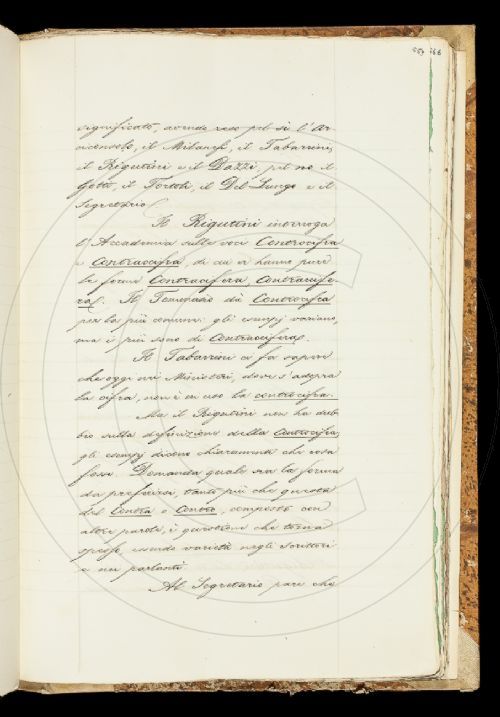 significato, avendo reso pel sì l'Ar-
ciconsolo, il Milanesi, il Tabarrini,
il Rigutini e il Dazzi, pel no il
Gotti, il Tortoli, il Del-Lungo e il
Segretario.
Il Rigutini interroga
l'Accademia sulle voci Controcifra
e Contraccifra, di cui si hanno pure
le forme Contracifera, Contracife-
ra. Il Tommaseo dà Controcifra
per la più comune: gli esempj variano,
ma i più sono di Contracifera.
Il Tabarrini ci fa sapere
che oggi nei Ministeri, dove s'adopra
la cifra, non è in uso la contracifra.
Ma il Rigutini non ha dub-
bio sulla definizione della Controcifra;
gli esempj dicono chiaramente che cosa
fosse. Domanda quale sia la forma
da preferirsi, tanto più che questa
del Contra o Contro, composte con
altre parole, è questione che torna
spesso, essendo varietà negli scrittori
e nei parlanti.
Al Segretario pare che